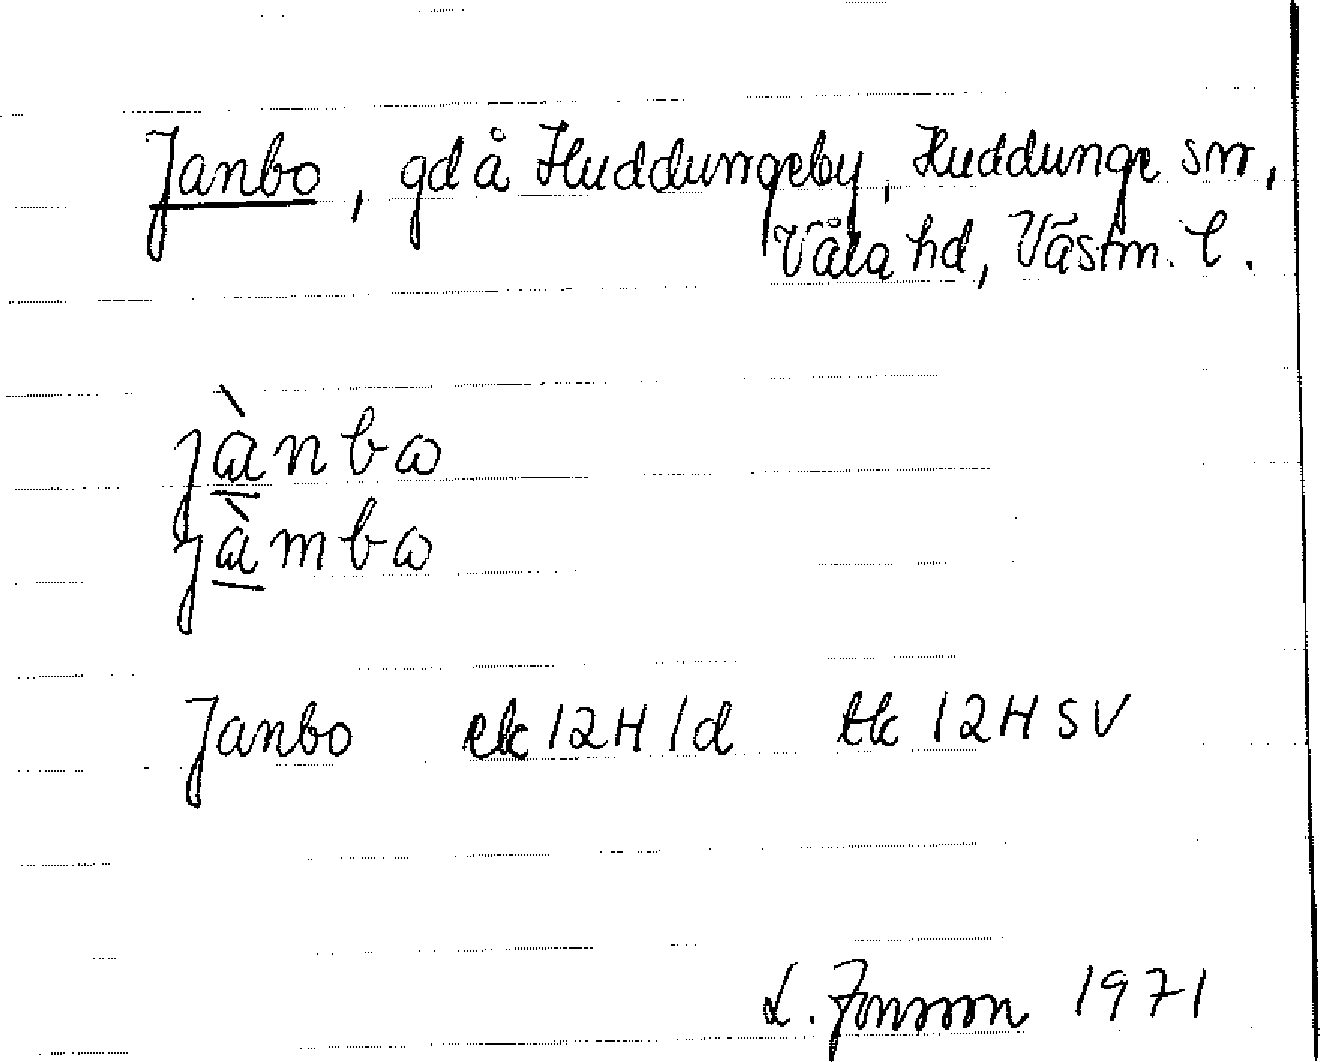 Janbo, gd å Huddungeby, Huddunge sn,
Våla hd, Västm. l.
jànbω
jàmbω
Janbo ek 12H 1d tk 12H SV
L. Jonsson 1971